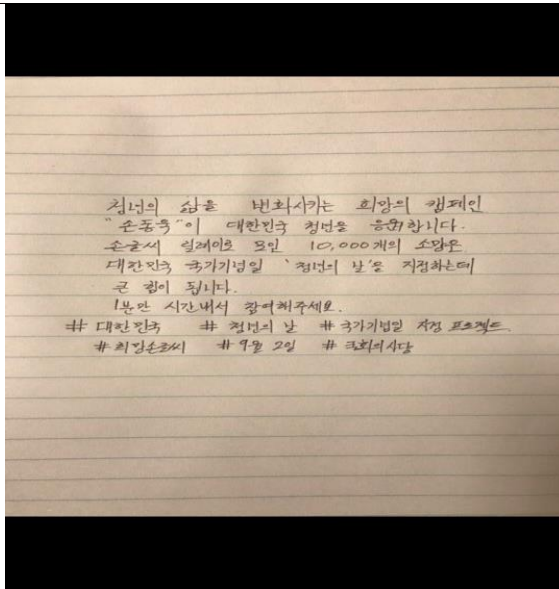 청년의 삶을 변화시키는 희망의 캠페인
"손동욱"이 대한민국 청년을 응원합니다.
손글씨 릴레이로 모인 10,000개의 소망은
대한민국 국가기념일 '청년의 날'을 지정하는데
큰 힘이 됩니다.
1분만 시간내서 참여해주세요.
# 대한민국 # 청년의 날 # 국가기념일 지정 프로젝트
# 희망손글씨 # 9월 2일 # 국회의사당